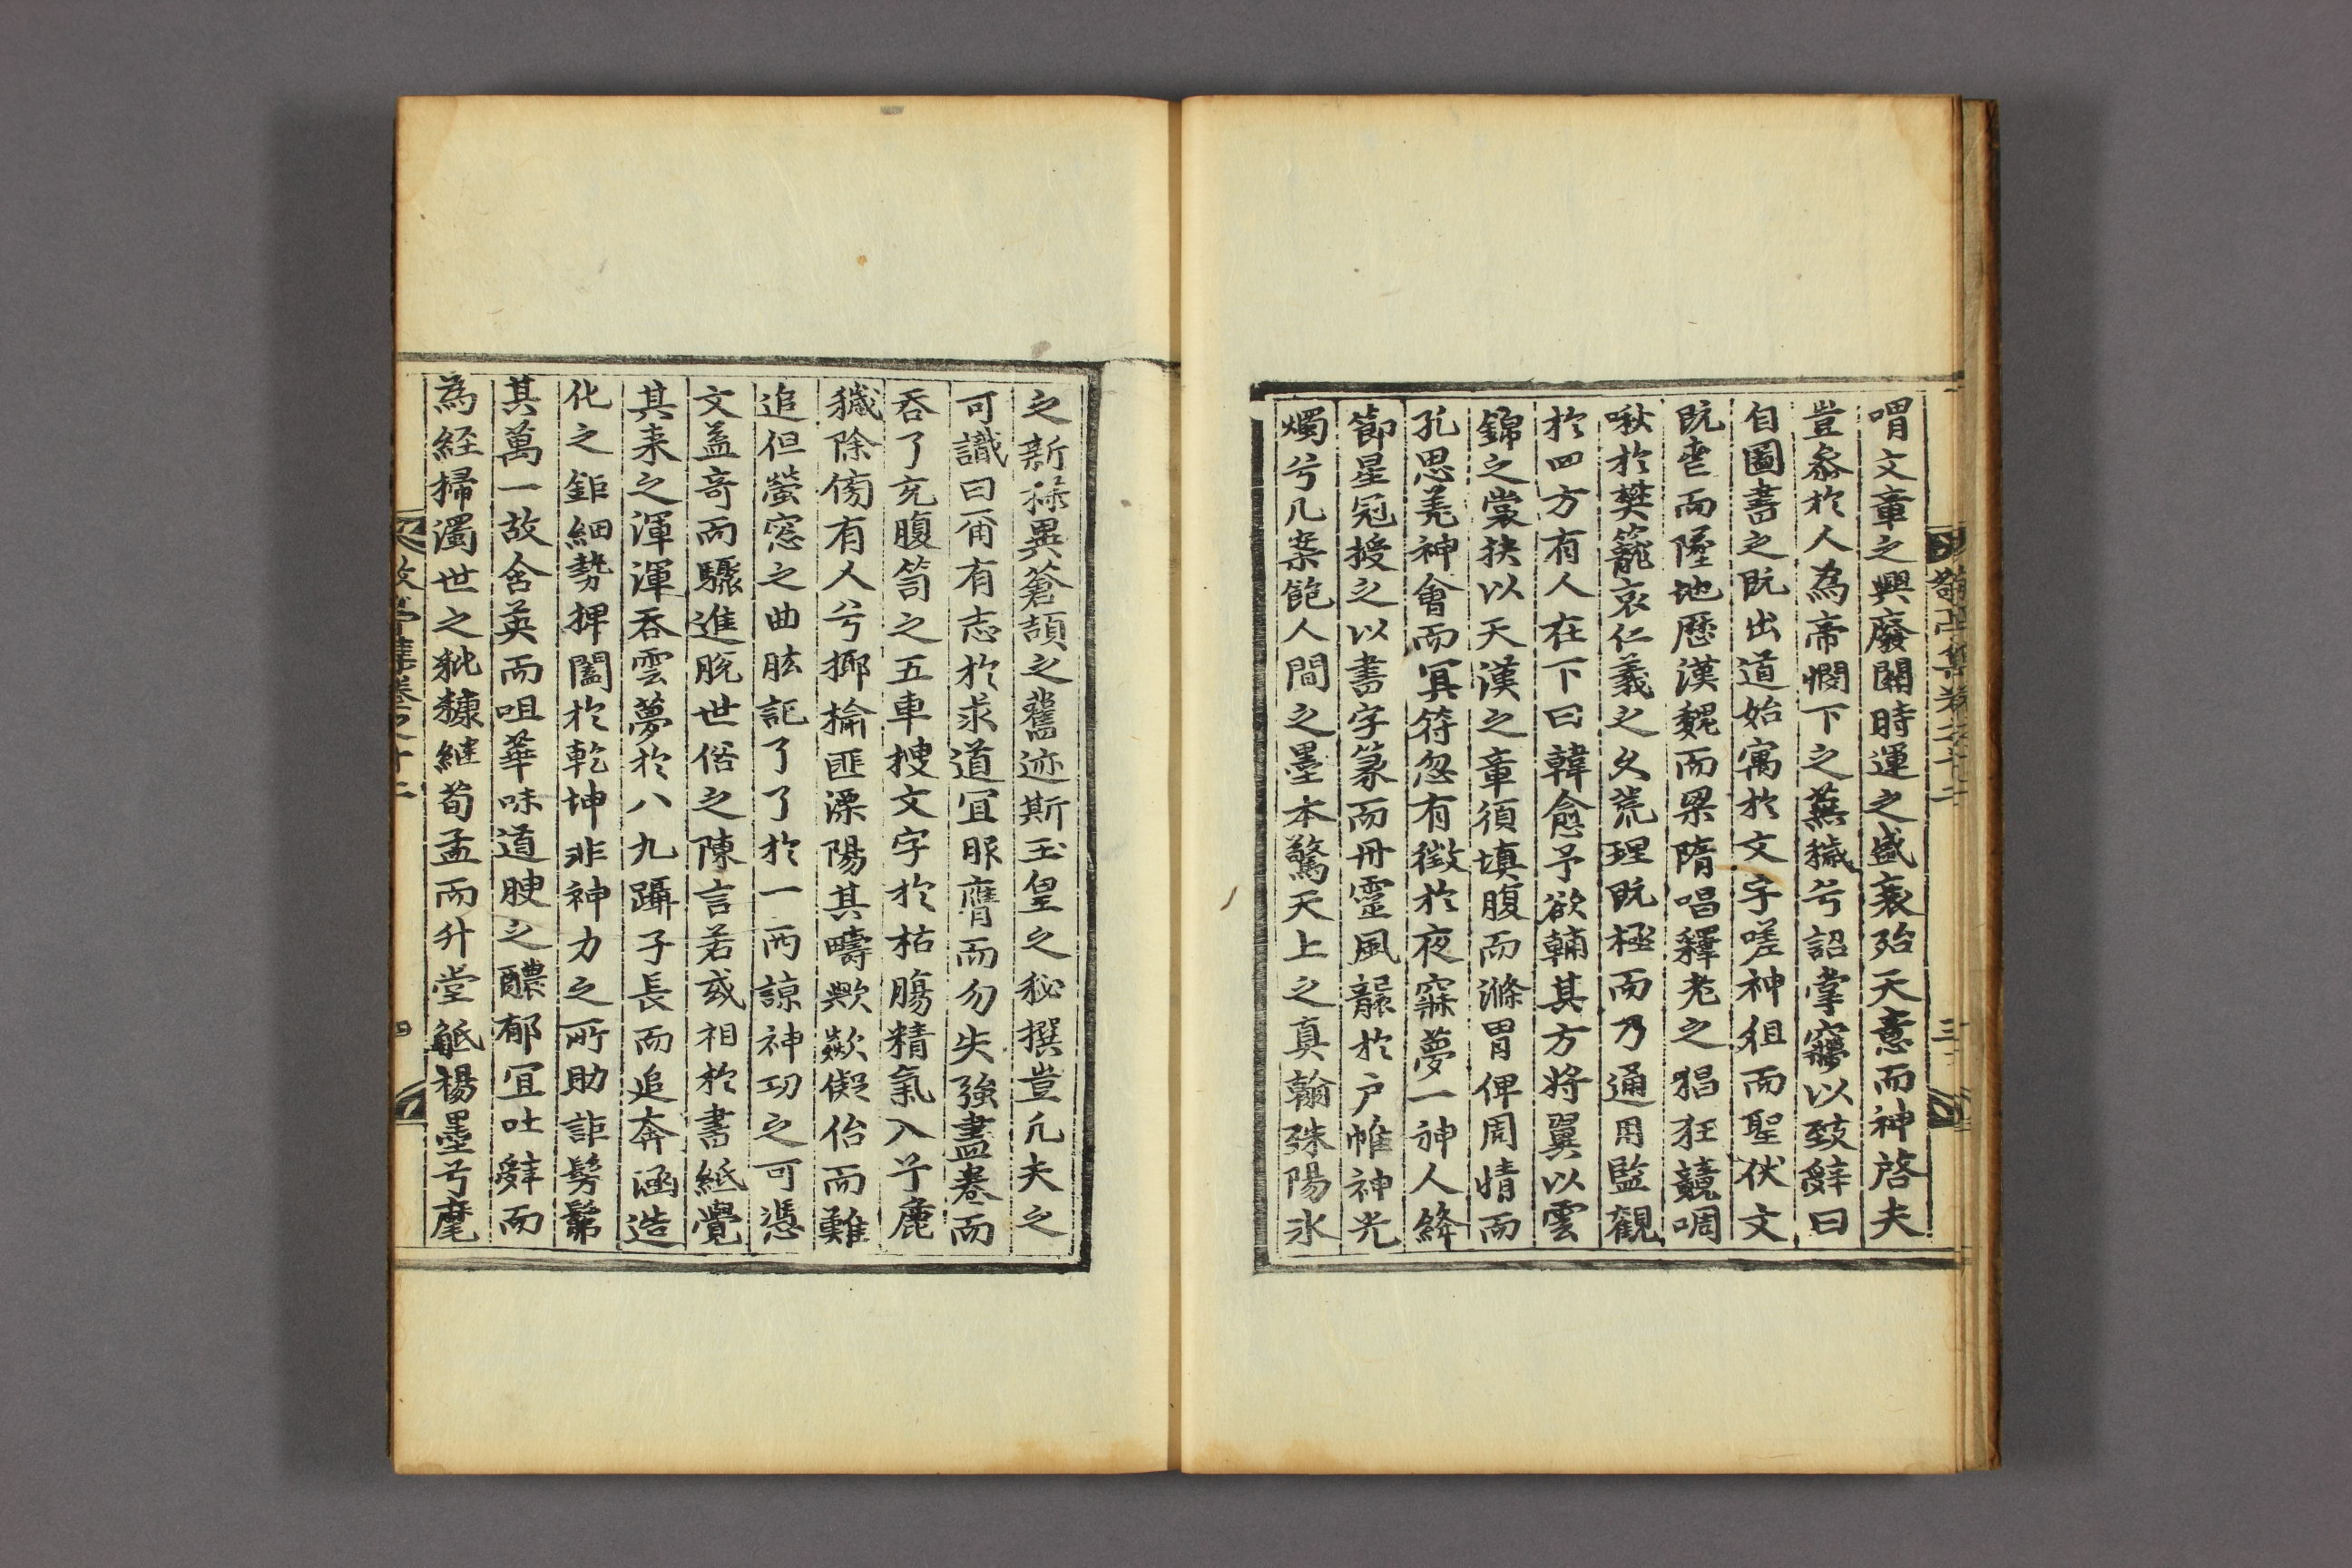 喟文章之興廢關時運之盛衰殆天意而神啓夫
豈叅於人為帝憫下之蕪穢兮詔掌㝱以致辭曰
自圖書之旣出道始寓於文字嗟神徂而聖伏文
旣喪而墜地歷漢魏而梁隋唱釋老之猖狂競啁
啾於樊籠哀仁義之久荒理旣極而乃通用監觀
於四方有人在下曰韓愈予欲輔其方將翼以雲
錦之裳抉以天漢之章須塡腹而滌胃俾周情而
孔思羌神會而冥符忽有徵於夜寐夢一神人絳
節星冠授之以書字篆而丹靈風颭於戶帷神光
燭兮几案飽人間之墨本驚天上之眞翰殊陽氷
之新䅵異蒼頡之舊迹斯玉皇之秘撰豈凡夫之
可識曰爾有志於求道宜服膺而勿失強盡卷而
吞了充腹笥之五車搜文字於枯腸精氣入兮麁
穢除傍有人兮揶揄匪溧陽其疇歟欻儗佁而難
追但螢窓之曲肱記了了於一兩諒神功之可憑
文益奇而驟進脫世俗之陳言若或相於書紙覺
其來之渾渾吞雲夢於八九躡子長而追奔涵造
化之鉅細勢捭闔於乾坤非神力之所助詎髣髴
其萬一故含英而咀華味道腴之醲郁宜吐辭而
為經掃濁世之粃糠継荀孟而升堂觝楊墨兮麾